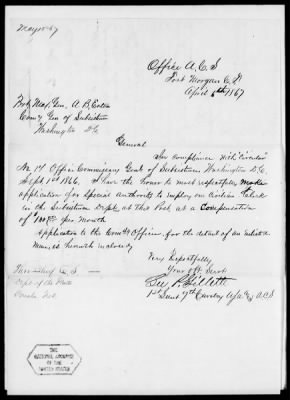 Office A.C.S
Fort Morgan C.T.
April 6th 1867
Bvt Maj Gen. A B. Eaton
Comy Gen of Subsistence
Washington D.C
General
In compliance with "Circular"
No 17 Office Commissary Genl of Subsistence, Washington D.C.
Sept 1st 1866, I have the honor to most respectfully make
application for special authority to employ one Civilian Clerk
in the Subsistence Dept at this Post at a Compensation
of $ per Month
Application to the Comdg Officer for the detail of an enlisted
Man, is herewith inclosed
Very Respectfully
Your obt Servt
Lee P. Gillette
1st Lieut 7th Cavalry
Dept of the Platte
Omaha Neb.
THE
NATIONAL ARCHIVES
OF THE
UNITED STATES